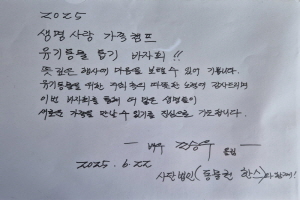 2025
생명사랑 가족캠프
유기동물 돕기 바자회!!
뜻 깊은 행사에 마음을 보탤 수 있어 기쁩니다.
유기동물을 위한 여러분의 따뜻한 노력에 감사드리며
이번 바자회를 통해 더 많은 생명들이
새로운 가족을 만날 수 있기를 진심으로 기도합니다.
- 배우 드림
2025. 6. 22
사단법인 (동물권 한스)